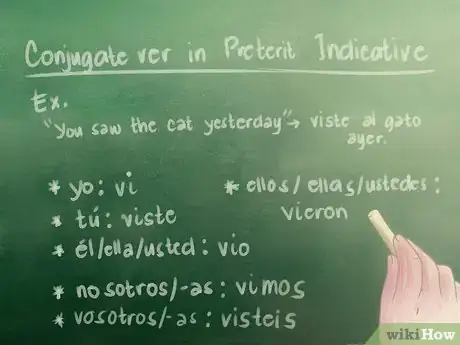 Conjugate ver in Preterit Indicative
Ex.
"You saw the cat yesterday" → viste al gato
ayer.
* yo: vi
* tú: viste
* él/ella/usted: vio
* nosotros/-as: vimos
* vosotros/-as: visteis
* ellos/ellas/ustedes:
vieron
wikiHow